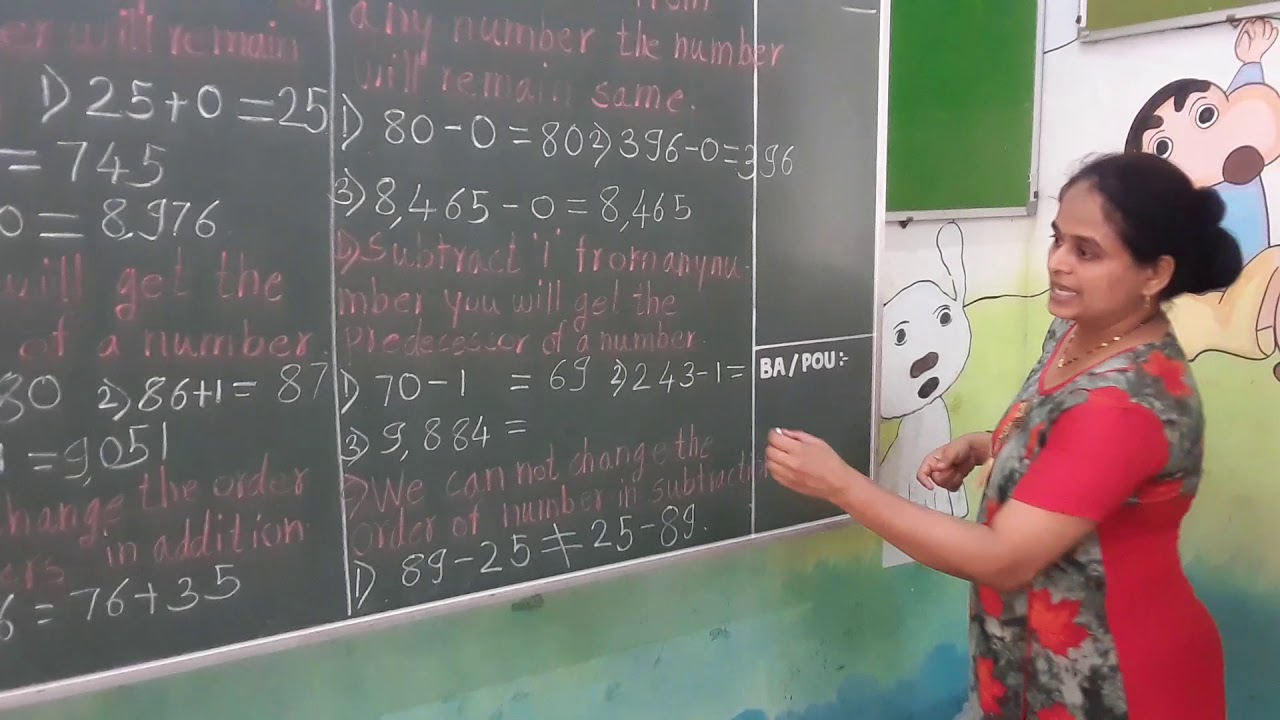 er will remain
1) 25+0=25
= 745
0 = 8,976
will get the
of a number
80 2) 86+1= 87
1 = 9,051
change the order
ers in addition
6 = 76+35
from
any number the number
will remain same.
1) 80-0=80 2) 396-0=396
3) 8,465-0=8,465
Subtract '1' from anynu-
mber you will get the
Predecessor of a number.
1) 70-1 = 69 2) 243-1=
3) 9,884 =
We can not change the
order of number in subtraction
1) 89-25≠25-89.
BA/POU:-